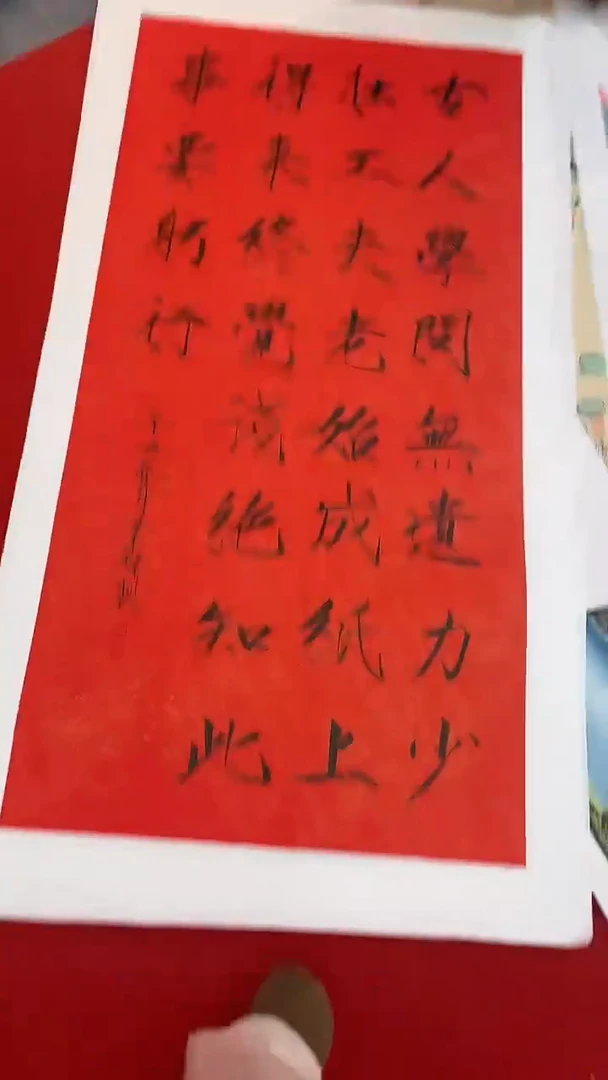 古人學問無遺力少
壯工夫老始成紙上
得来終覺淺絶知此
事要躬行